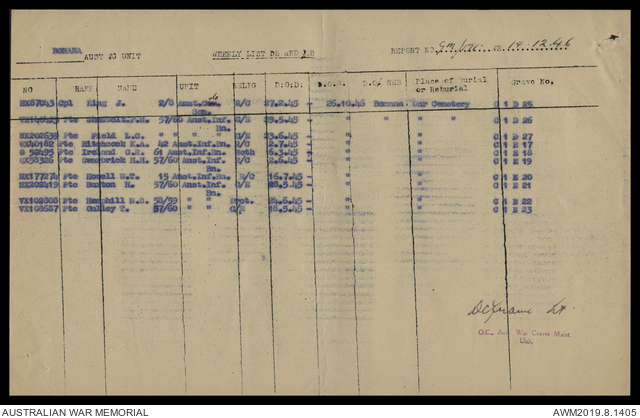 BOMANA
AUST UNIT WEEKLY LIST DB AND REPORT NO. 19.12.46
NO RANK NAME UNIT RELIG D:O:D: D.O.B. D.O/ REB Place of Burial or Reburial Grave No.
NX87043 Cpl King J. 2/8 Aust.Com. R/C 27.2.45 - 25.10.45 Bomana War Cemetery C 1 D 25
Pte 57/60 Aust.Inf. Bn. C/E 29.5.45 - " " " " C 1 D 26
NX202639 Pte Field L.C. " " C/E 23.6.45 - " C 1 D 27
Pte Hitchcock K.A. 42 Aust.Inf.Bn. C/E 2.7.45 - " C 1 E 17
Pte Ireland C.R. 61 Aust.Inf.Bn. Meth 6.3.45 - " C 1 E 18
Pte H.H. 57/60 Aust.Inf. Bn. C/E 2.6.45 - " C 1 E 19
Pte Howell W.T. 15 Aust.Inf.Bn. R/C 16.7.45 - " C 1 E 20
Pte Burton H. 57/60 Aust.Inf. Bn. C/E 28.5.45 - " C 1 E 21
VX102808 Pte Hemphill R.S. 58/59 " " Prot. 24.6.45 - " C 1 E 22
VX108587 Pte Oakley T. 57/60 " " C/E 18.5.45 - " C 1 E 23
Lt
O.C. Aust War Graves Maint.
Unit.
AUSTRALIAN WAR MEMORIAL AWM2019.8.1405